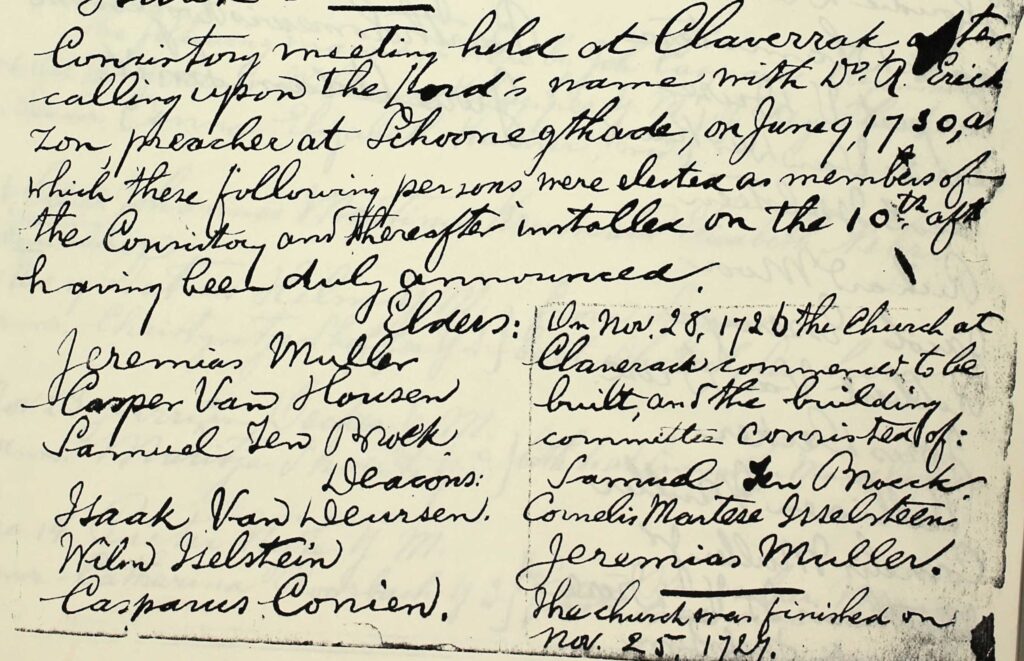 Consistory meeting held at Claverrak, after
calling upon the Lord's name with Do. A. Erick
zon, preacher at Schoonegthade, on June 9, 1730, at
which these following persons were elected as members of
the Consistory and thereafter installed on the 10th aft
having been duly announced.
Elders:
Jeremias Muller
Casper Van Housen
Samuel Ten Broek
Deacons:
Isaak Van Deursen.
Wilm Iselstein
Casparus Conien.
On Nov. 28, 1726 the Church at
Claverack commenced to be
built, and the building
committee consisted of:
Samuel Ten Broeck
Cornelis Martese Isselsteen
Jeremias Muller.
The church was finished on
Nov. 25, 1727.